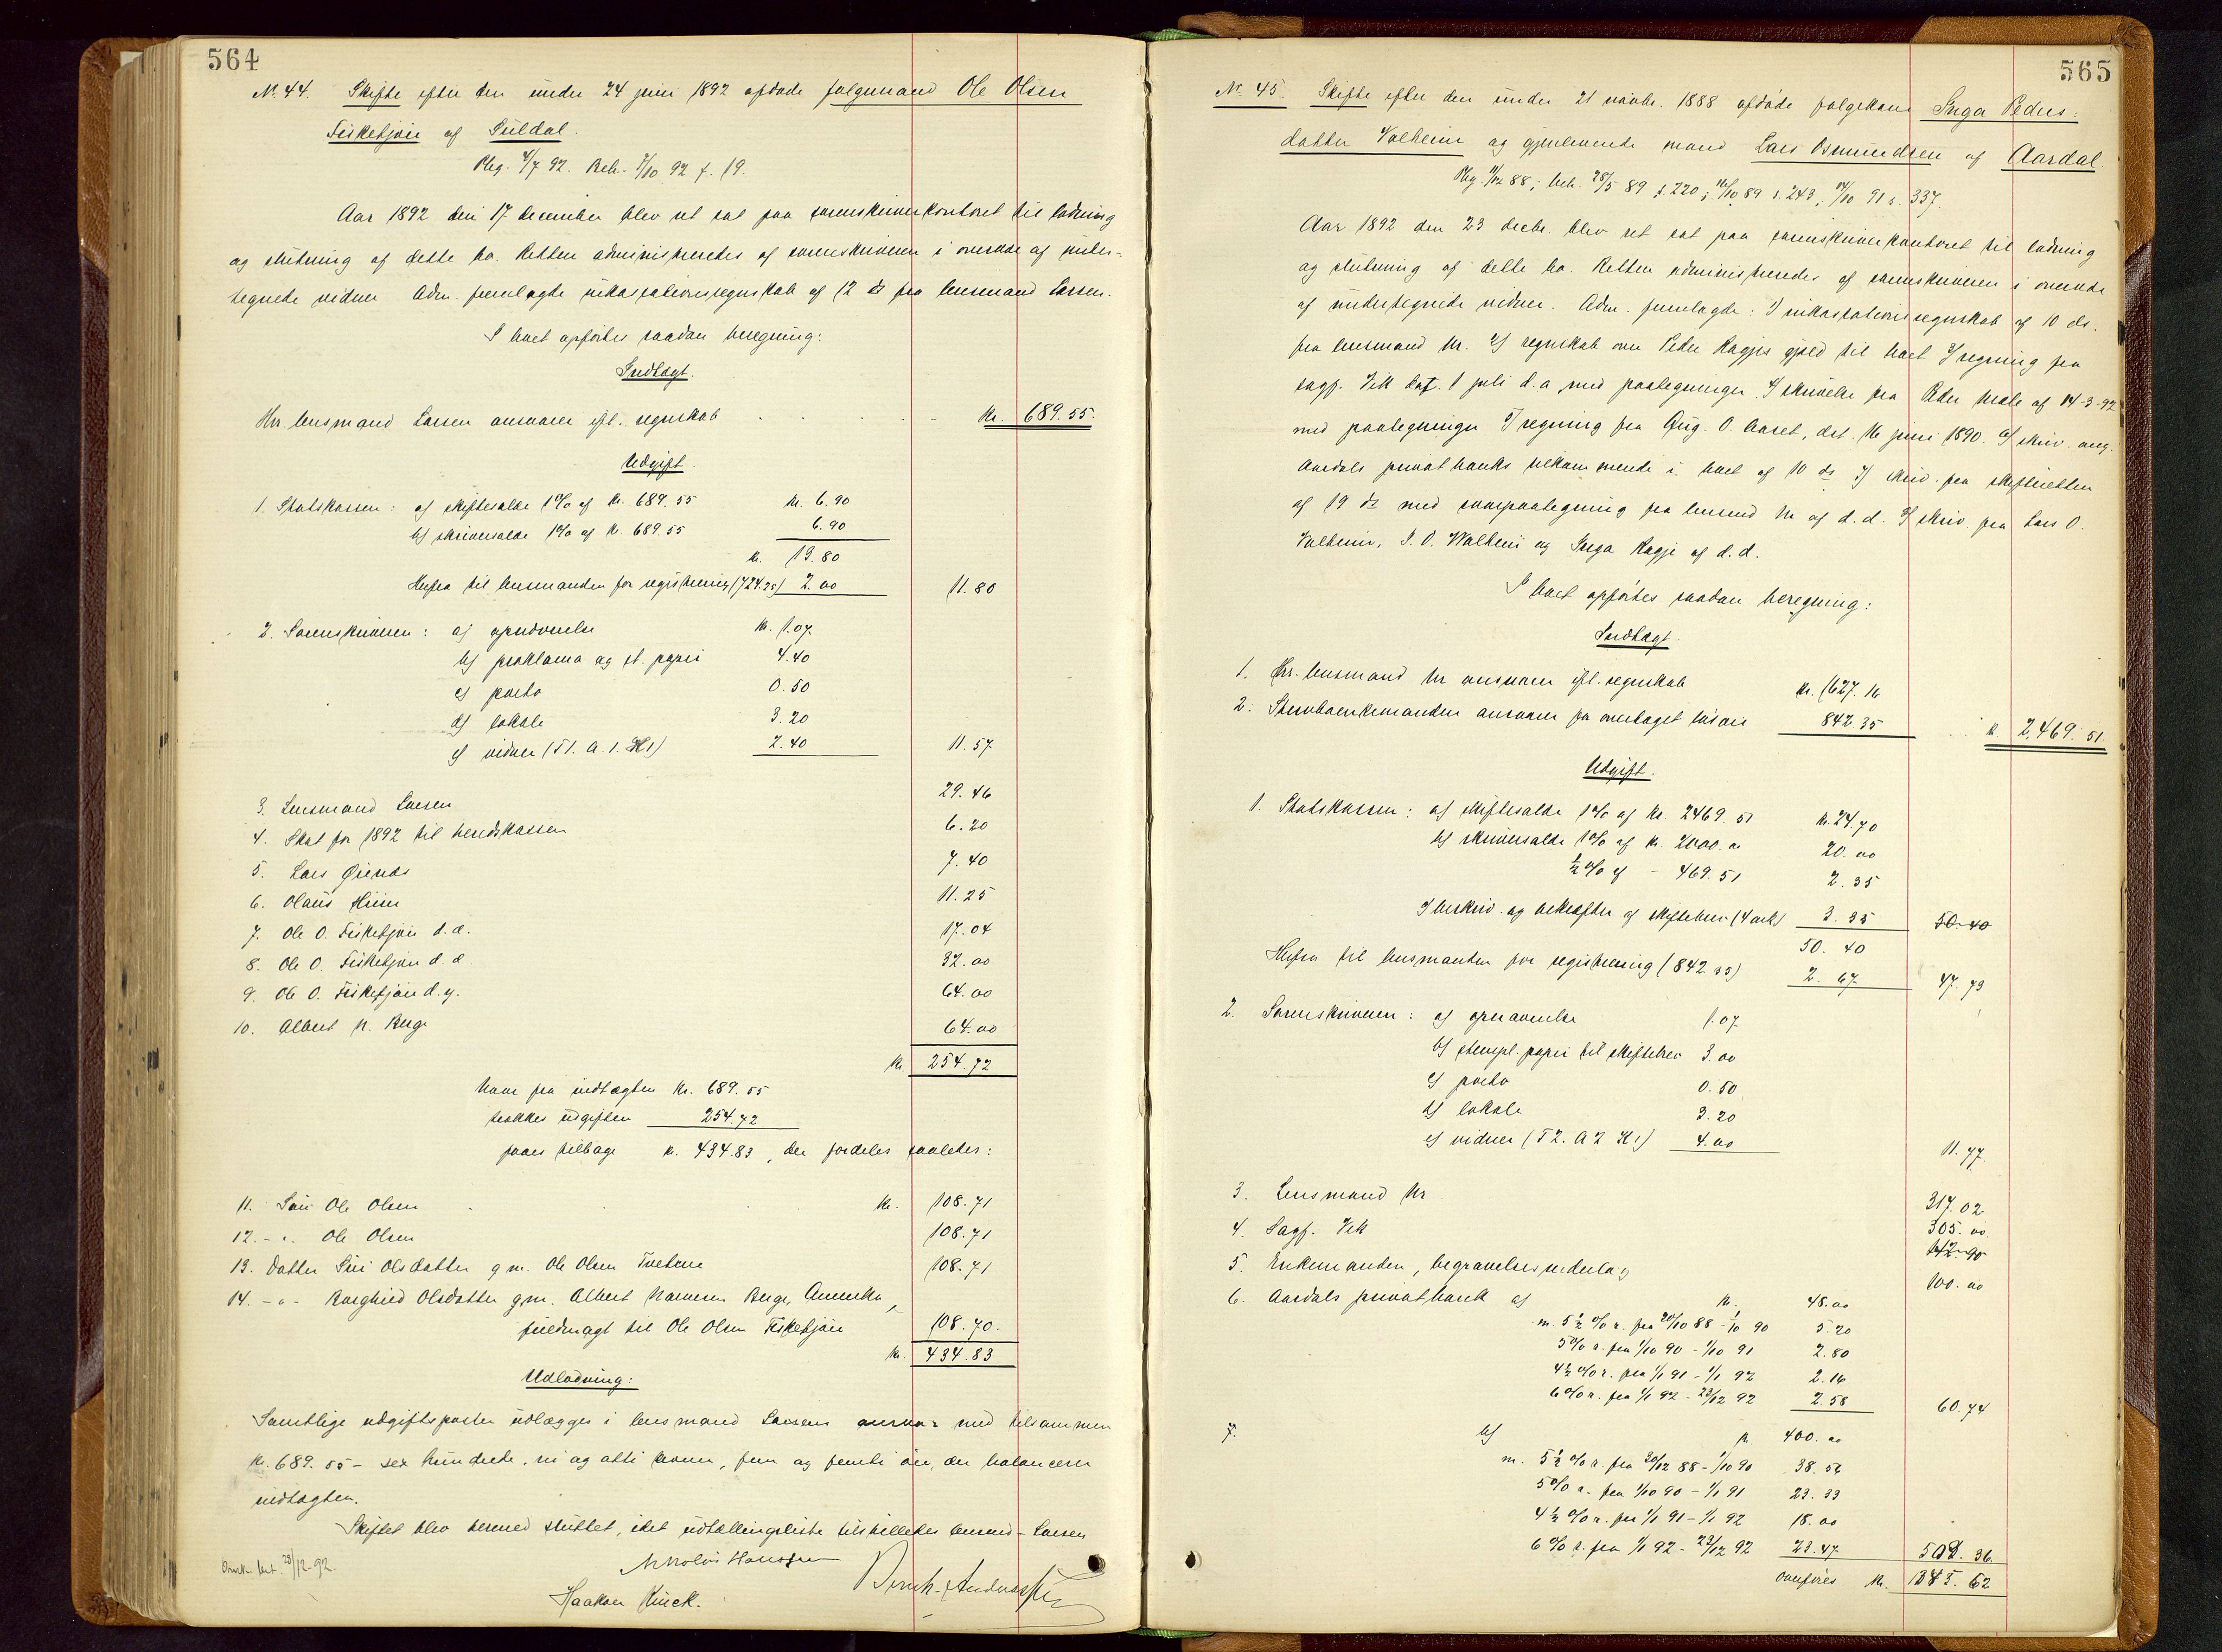 564
No. 44. Skifte efter den under 24 juni 1892 afdøde følgemand Ole Olsen
Fisketjøn af Suldal.
Reg. 4/7 92. Beh. 7/10 92 f. 19.
Aar 1892 den 17 december blev ret sat paa sorenskriverkontoret til lodning
og slutning af dette bo. Retten administreredes af sorenskriveren i overvær af under-
tegnede vidner. Adm. fremlagde inkassationsregnskab af 12 ds fra lensmand Larsen.
I boet opførtes saadan beregning:
Indtægt.
Hr. lensmand Larsen ansvarer efl. regnskab Kr. 689.55.
Udgift.
1. Statskassen: a) skiftesalde 1% af kr. 689.55 kr. 6.90
b) skriversalde 1% af kr. 689.55 6.90
kr. 13.80
Herfra til lensmanden for registrering (724.35) 2.00 11.80
2. Sorenskriveren: a) opnævnelse kr. 1.07
b) proklama og st. papir 4.40
c) porto 0.50
d) lokale 3.20
e) vidner (T1. A. 1. K1) 2.40 11.57
3. Lensmand Larsen 29.46
4. Skat for 1892 til herredskassen 6.20
5. Lars 7.40
6. Olaus 11.25
7. Ole O. Fisketjøn d.æ. 17.04
8. Ole O. Fisketjøn d.æ. 32.00
9. Ole O. Fisketjøn d.y. 64.00
10. Albert N. Berge 64.00
Kr. 254.72
Naar fra indtægten kr. 689.55
trækkes udgiften 254.72
faaes tilbage kr. 434.83, der fordeles saaledes:
11. Søn Ole Olsen kr. 108.71
12. - " - Ole Olsen 108.71
13. Datter Siri Olsdatter g.m. Ole Olsen Tvetene 108.71
14. - " - Borghild Olsdatter g.m. Albert Berge, Amerika,
fuldmagt til Ole Olsen Fisketjøn 108.70.
Kr. 434.83
Udlodning:
Samtlige udgiftsposter udlægges i lensmand Larsens ansvar med tilsammen
kr. 689.55 - sex hundrede, ni og otti kroner, fem og femti øre, der balancerer
indtægten.
Skiftet blev hermed sluttet, idet udtællingsliste tilstilledes lensmd. Larsen
Nikolai Hanssen
Haakon Kinck.
28/12-92.
565
No. 45. Skifte efter den under 21 novbr. 1888 afdøde følgekone Inga Peders-
datter Valheim og gjenlevende mand Lars Osmundsen af Aardal.
Reg. 11/12 88; beh. 28/5 89 s 220; 16/10 89 s. 243; 14/10 91 s. 337.
Aar 1892 den 23 decbr. blev ret sat paa sorenskriverkontoret til lodning
og slutning af dette bo. Retten administreredes af sorenskriveren i overvær
af undertegnede vidner. Adm. fremlagde: 1) inkassationsregnskab af 10 ds.
fra lensmand Ur. 2) regnskab over Peder Kagjes gjæld til boet 3) regning fra
sagf. Vik dat. 1 juli d.a med paategninger 4) skrivelse fra Peder Mæle af 14-3-92
med paategninger 5) regning fra Aug. O. Aaset, dat. 16 juni 1890. 6) skriv. ang.
Aardals privatbanks tilkommende i boet af 10 ds 7) skriv. fra skifteretten
af 19 ds med svarpaategning fra lensmd Ur af d.d. 8) skriv. fra Lars O.
Valheim, I. O. Walheim og Inga Kagje af d.d.
I boet opførtes saadan beregning:
Indtægt.
1. Hr. lensmand Ur ansvarer efl. regnskab kr. 1627.16
2. Stervboenkemanden ansvarer for overtaget løsøre 842.35 kr. 2,469.51
Udgift.
1. Statskassen: a) skiftesalde 1% af kr. 2469.51 kr. 24.70
b) skriversalde 1% af kr. 2000.00 20.00
½% af - 469.51 2.35
c) beskriv. og bekræftn. af skiftebrev (4 ark) 3.35 50.40
50.40
Herfra til lensmanden for registrering (842.35) 2.67 47.73
2. Sorenskriveren: a) opnævnelse 1.07
b) stempl. papir til skiftebrev 3.00
c) porto 0.50
d) lokale 3.20
e) vidner (T2. A2 K1) 4.00 11.77
3. Lensmand Ur 317.02
4. Sagf. Vik 305.00
142.90
5. Enkemanden, begravelsesvederlag 100.00
6. Aardals privatbank a) kr. 48.00
m. 5½% r. fra 20/10 88 - 1/10 90 5.20
5% r. fra 1/10 90 - 1/10 91 2.80
4½% r. fra 1/1 91 - 1/1 92 2.16
6% r. fra 1/1 92 - 23/12 92 2.58 60.74
7. b) kr. 400.00
m. 5½% r. fra 30/12 88 - 1/10 90 38.56
5% r. fra 1/10 90 - 1/1 91 23.33
4½% r. fra 1/1 91 - 1/1 92 18.00
6% r. fra 1/1 92 - 23/12 92 23.47 503.36
overføres kr. 1345.62